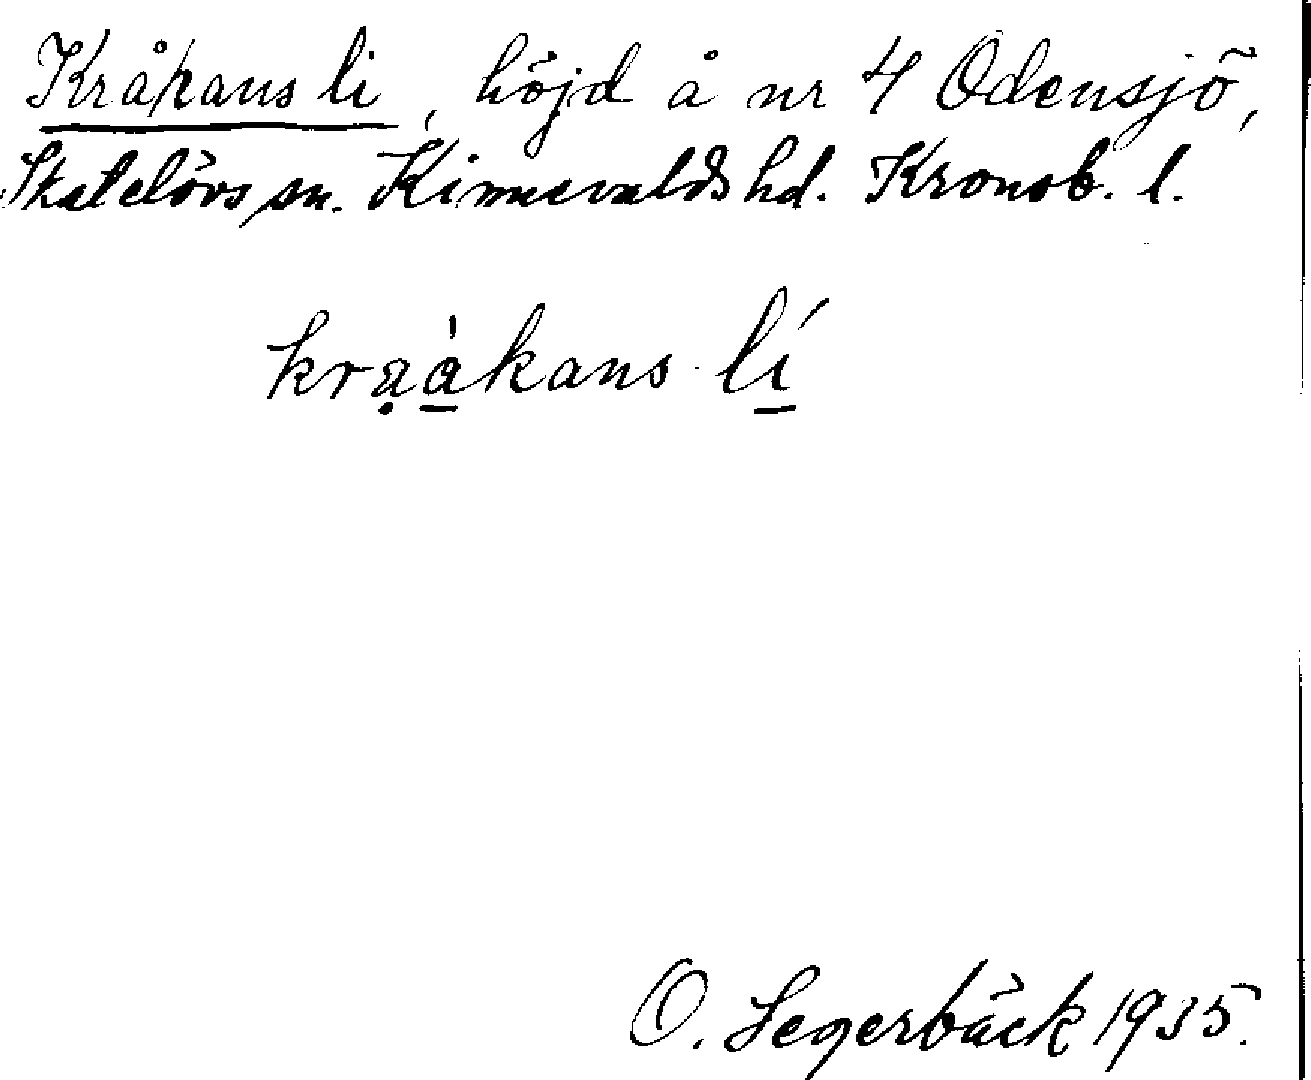 Kråkans li, höjd å nr 4 Odensjö,
Skatelövs sn. Kinnevalds hd. Kronob. l.
krạà̲kans lí̲
O. Segerbäck 1935.